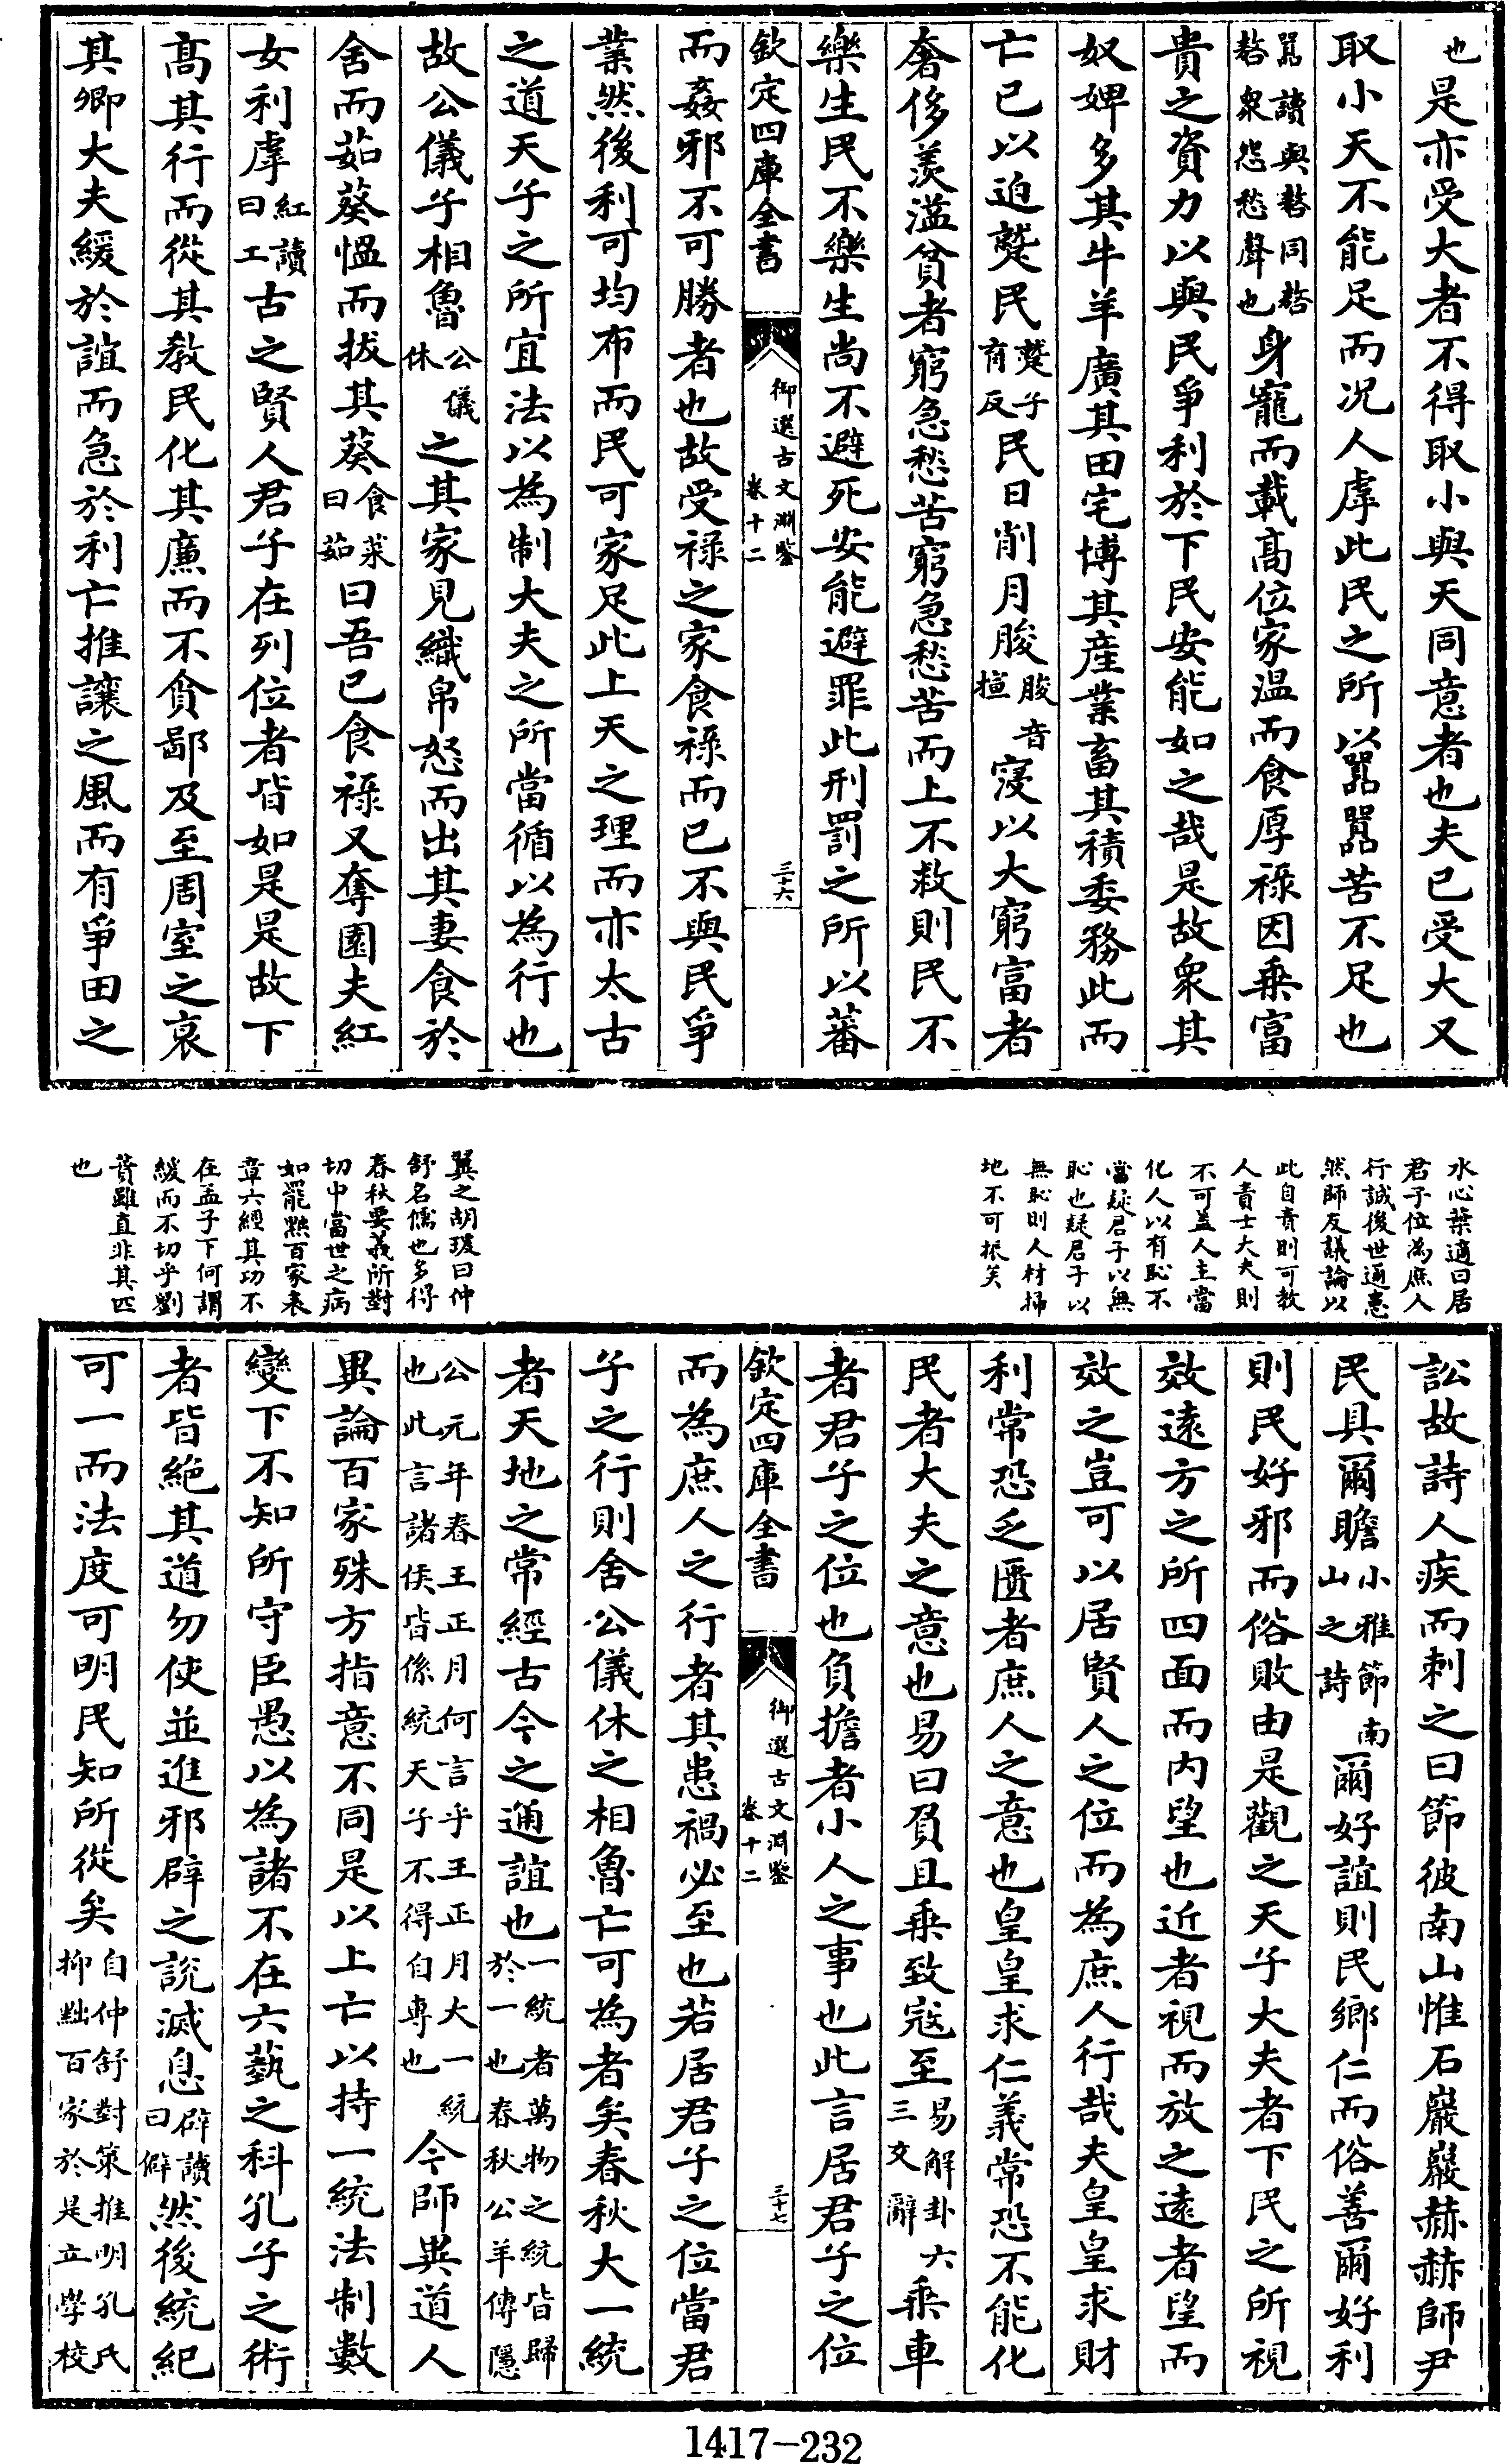 也是亦受大者不得取小與天同意者也夫已受大又
取小天不能足而况人虖此民之所以嚻嚻苦不足也
嚻讀與嗸同嗸
嗸衆怨愁聲也
身寵而載髙位家温而食厚祿因乗富
貴之資力以與民爭利於下民安能如之哉是故衆其
奴婢多其牛羊廣其田宅博其産業畜其積委務此而
亡已以迫蹵民
蹵子
育反
民日削月朘
朘音
揎
寖以大窮富者
奢侈羡溢貧者窮急愁苦窮急愁苦而上不救則民不
樂生民不樂生尚不避死安能避罪此刑罰之所以蕃
欽定四庫全書
御選古文淵鑒
卷十二
三十六
而姦邪不可勝者也故受祿之家食祿而已不與民爭
業然後利可均布而民可家足此上天之理而亦太古
之道天子之所宜法以為制大夫之所當循以為行也
故公儀子相魯
公儀
休
之其家見織帛怒而出其妻食於
舍而茹葵愠而拔其葵
食菜
曰茹
曰吾已食祿又奪園夫紅
女利虖
紅讀
曰工
古之賢人君子在列位者皆如是是故下
髙其行而從其教民化其廉而不貪鄙及至周室之衰
其卿大夫緩於誼而急於利亡推讓之風而有爭田之
水心葉適曰居
君子位為庶人
行誠後世通患
然師友議論以
此自責則可教
人責士大夫則
不可盖人主當
化人以有恥不
當疑君子以無
恥也疑君子以
無恥則人材掃
地不可振矣
翼之胡瑗曰仲
舒名儒也多得
春秋要義所對
切中當世之病
如罷黜百家表
章六經其功不
在孟子下何謂
緩而不切乎劉
蕡雖直非其匹
也
訟故詩人疾而刺之曰節彼南山惟石巖巖赫赫師尹
民具爾瞻
小雅節南
山之詩
爾好誼則民鄉仁而俗善爾好利
則民好邪而俗敗由是觀之天子大夫者下民之所視
效逺方之所四面而内望也近者視而放之逺者望而
效之豈可以居賢人之位而為庶人行哉夫皇皇求財
利常恐乏匱者庶人之意也皇皇求仁義常恐不能化
民者大夫之意也易曰負且乗致寇至
易解卦六
三爻辭
乗車
者君子之位也負擔者小人之事也此言居君子之位
欽定四庫全書
御選古文淵鑒
卷十二
三十七
而為庶人之行者其患禍必至也若居君子之位當君
子之行則舍公儀休之相魯亡可為者矣春秋大一統
者天地之常經古今之通誼也
一統者萬物之統皆歸
於一也春秋公羊傳隱
公元年春王正月何言乎王正月大一統
也此言諸侯皆係統天子不得自專也
今師異道人
異論百家殊方指意不同是以上亡以持一統法制數
變下不知所守臣愚以為諸不在六藝之科孔子之術
者皆絶其道勿使並進邪辟之説滅息
辟讀
曰僻
然後統紀
可一而法度可明民知所從矣
自仲舒對策推明孔氏
抑黜百家於是立學校
1417-232